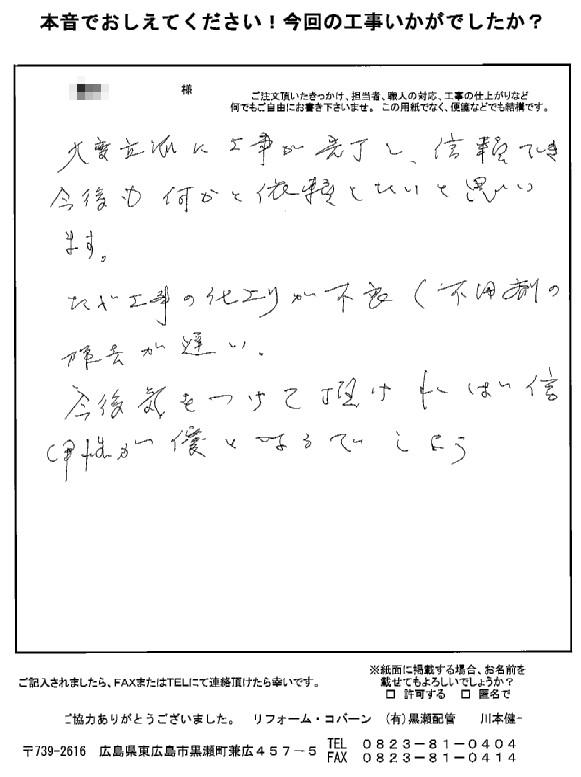 本音でおしえてください！今回の工事いかがでしたか？
様
ご注文頂いたきっかけ、担当者、職人の対応、工事の仕上がりなど
何でもご自由にお書き下さいませ。この用紙でなく、便箋などでも結構です。
大変立派に工事が完了し、信頼でき
今後も何かと依頼したいと思い
ます。
ただ工事の仕上りが不良（不用剤の
除去が遅い。
今後気をつけて頂ければ信
になるでしょう
※紙面に掲載する場合、お名前を
載せてもよろしいでしょうか？
□ 許可する □ 匿名で
ご記入されましたら、FAXまたはTELにて連絡頂けたら幸いです。
ご協力ありがとうございました。 リフォーム・コバーン （有）黒瀬配管 川本健一
〒739-2616 広島県東広島市黒瀬町兼広４５７－５
TEL ０８２３－８１－０４０４
FAX ０８２３－８１－０４１４